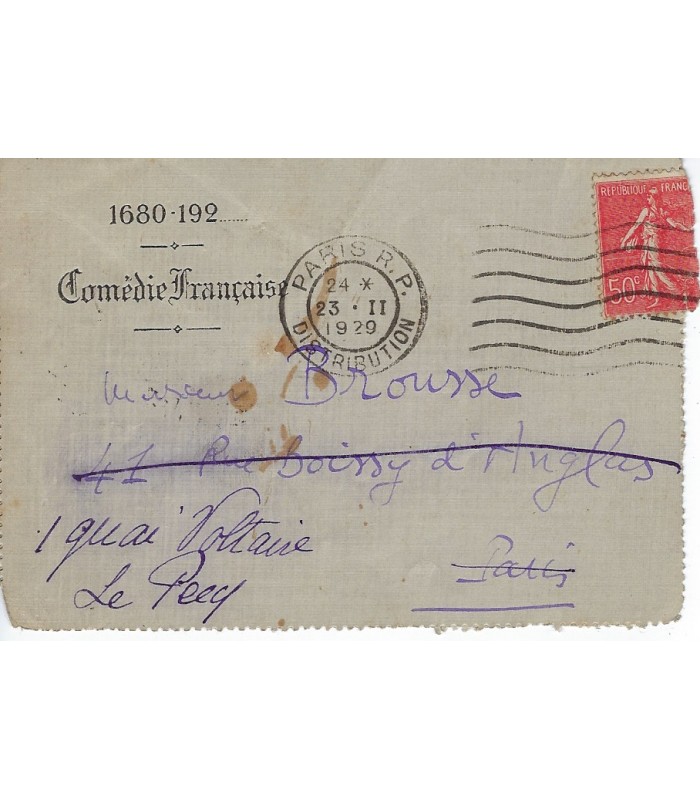 1680-192......
Comédie Française
PARIS R.P.
24 *
23 · II
1929
DISTRIBUTION
REPUBLIQUE FRANC
50c
Monsieur Brousse
41 Rue Boissy d'Anglas
Paris
1 quai Voltaire
Le Pecq